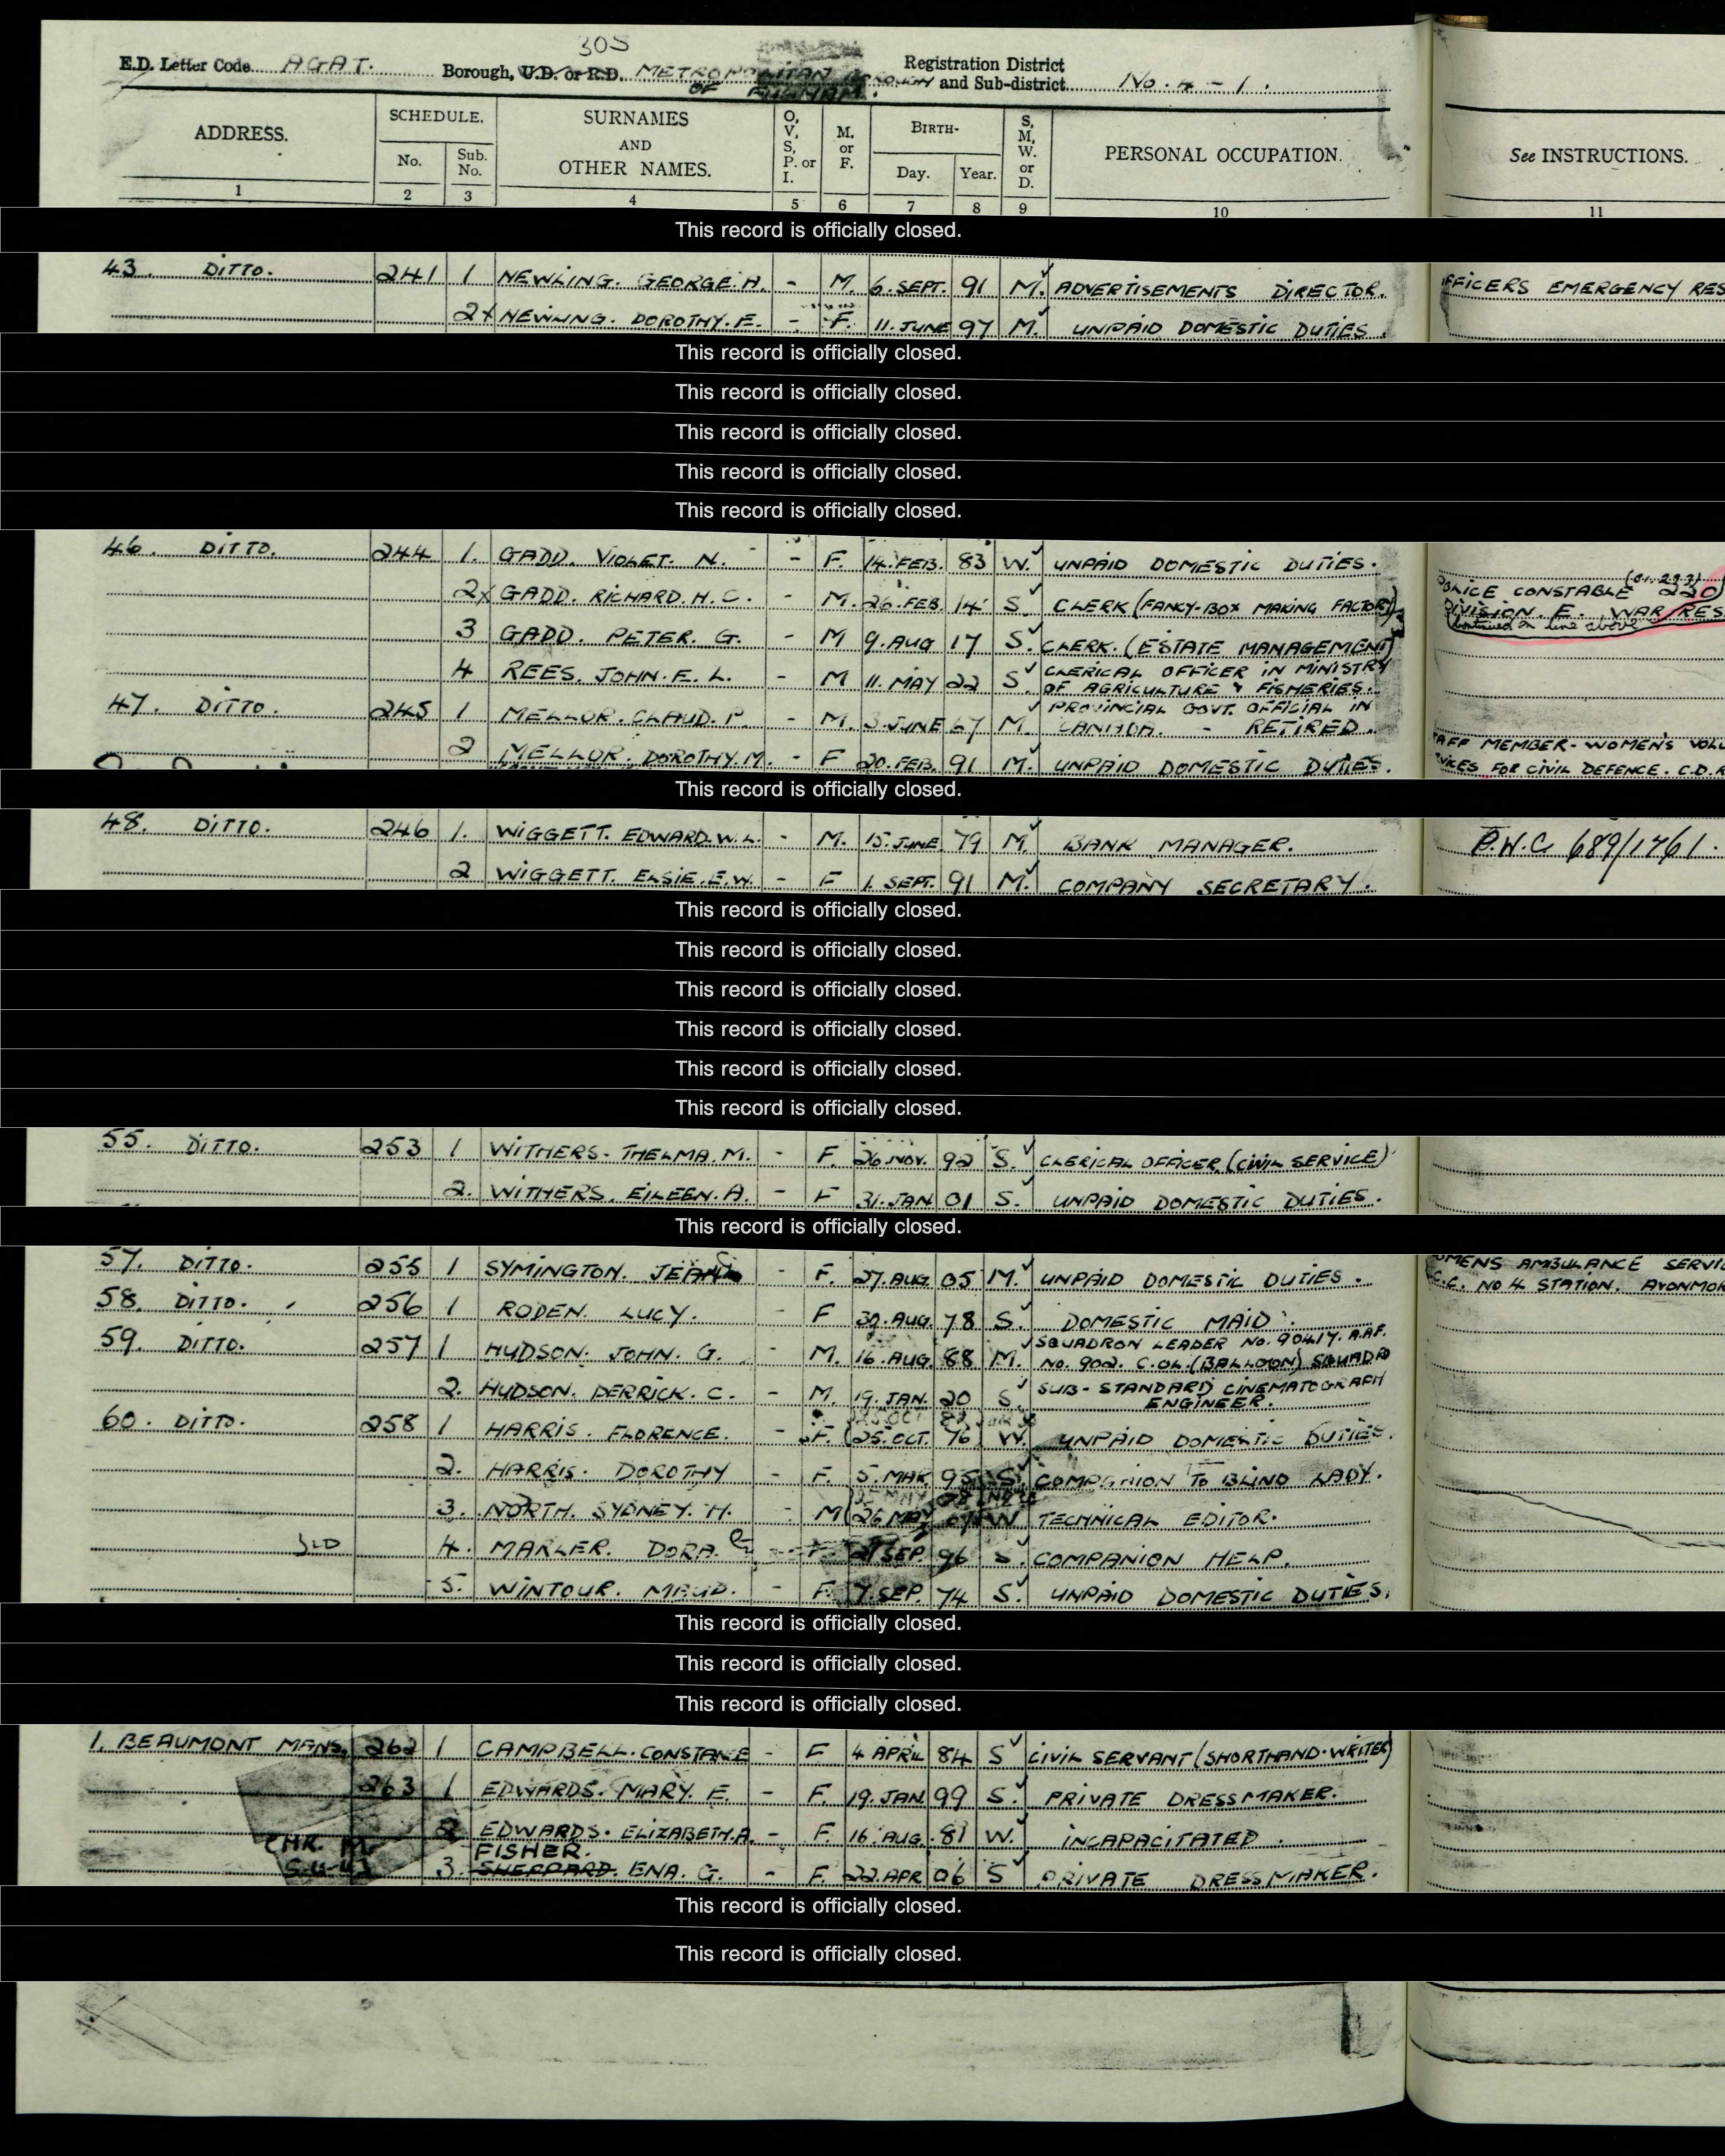 305
E.D. Letter Code AGAT. Borough, U.D. or R.D. METROPOLITAN BOROUGH OF FULHAM. Registration District and Sub-district No. 4 - 1.
ADDRESS. SCHEDULE. No. Sub. No. SURNAMES AND OTHER NAMES. O, V, S, P. or I. M. or F. BIRTH- Day. Year. S, M, W. or D. PERSONAL OCCUPATION. See INSTRUCTIONS.
1 2 3 4 5 6 7 8 9 10 11
This record is officially closed.
43. DITTO. 241 1 NEWLING. GEORGE. A. - M. 6. SEPT. 91 M. ADVERTISEMENTS DIRECTOR. FFICERS EMERGENCY RES
2 NEWLING. DOROTHY. E. - F. 11. JUNE 97 M. UNPAID DOMESTIC DUTIES.
This record is officially closed.
This record is officially closed.
This record is officially closed.
This record is officially closed.
This record is officially closed.
46. DITTO. 244 1. GADD. VIOLET. N. - F. 14. FEB. 83 W. UNPAID DOMESTIC DUTIES.
2x GADD. RICHARD. H. C. - M. 26. FEB. 14 S. CLERK (FANCY-BOX MAKING FACTORY) POLICE CONSTABLE 220)
DIVISION. E. WAR RES
Continued on line above
3 GADD. PETER. G. - M 9. AUG 17 S. CLERK. (ESTATE MANAGEMENT)
4 REES. JOHN. E. L. - M 11. MAY 22 S. CLERICAL OFFICER IN MINISTRY
OF AGRICULTURE & FISHERIES.
47. DITTO. 245 1 MELLOR. CLAUD. P. - M. 3. JUNE 67 M. PROVINCIAL GOVT. OFFICIAL IN
CANADA. - RETIRED.
2 MELLOR. DOROTHY. M. - F 20. FEB. 91 M. UNPAID DOMESTIC DUTIES. AFF MEMBER - WOMEN'S VOLU
VICES FOR CIVIL DEFENCE. C.D.R
This record is officially closed.
48. DITTO. 246 1. WIGGETT. EDWARD. W. L. - M. 15. JUNE. 79 M. BANK MANAGER. P.W.C 689/1761.
2 WIGGETT. ELSIE. E. W. - F 1. SEPT. 91 M. COMPANY SECRETARY.
This record is officially closed.
This record is officially closed.
This record is officially closed.
This record is officially closed.
This record is officially closed.
This record is officially closed.
55. DITTO. 253 1 WITHERS - THELMA. M. - F. 26. NOV. 92 S. CLERICAL OFFICER (CIVIL SERVICE)
2. WITHERS. EILEEN. A. - F 31. JAN 01 S. UNPAID DOMESTIC DUTIES.
This record is officially closed.
57. DITTO. 255 1 SYMINGTON. JEAN - F. 27. AUG. 05 M. UNPAID DOMESTIC DUTIES. OMENS AMBULANCE SERVIC
C.C. NO 4 STATION. AVONMOR
58. DITTO. 256 1 RODEN. LUCY. F 30. AUG. 78 S. DOMESTIC MAID.
59. DITTO. 257 1 HUDSON. JOHN. G. - M. 16. AUG 88 M. SQUADRON LEADER NO. 90417. A.A.F.
NO. 902. C.OL. (BALLOON) SQUADR
2. HUDSON. DERRICK. C. - M. 19. JAN. 20 S. SUB-STANDARD CINEMATOGRAPH
ENGINEER.
60. DITTO. 258 1 HARRIS. FLORENCE. - F. (25. OCT. 76) W. UNPAID DOMESTIC DUTIES.
2. HARRIS. DOROTHY - F. 5. MAR 95 S. COMPANION TO BLIND LADY.
3. NORTH. SYDNEY. H. - M (26 MAY W TECHNICAL EDITOR.
4. MARLER. DORA. F 21 SEP. 96 S. COMPANION HELP.
5. WINTOUR. MAUD. - F. 7. SEP. 74 S. UNPAID DOMESTIC DUTIES.
This record is officially closed.
This record is officially closed.
This record is officially closed.
1. BEAUMONT MANS. 262 1 CAMPBELL. CONSTANCE - F 4 APRIL 84 S CIVIL SERVANT (SHORTHAND-WRITER)
263 1 EDWARDS. MARY. E. - F. 19. JAN 99 S. PRIVATE DRESSMAKER.
2 EDWARDS. ELIZABETH. A. - F. 16. AUG. 81 W. INCAPACITATED.
CHR. FISHER.
3. SHEPPARD. ENA. G. - F. 22. APR 06 S PRIVATE DRESSMAKER.
This record is officially closed.
This record is officially closed.